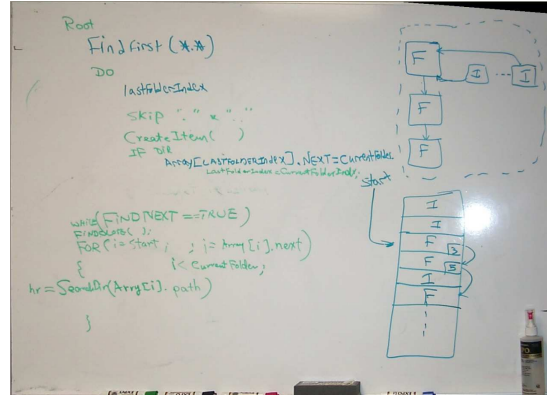 Root
FindFirst(*.*)
DO
lastFolderIndex
skip "." & ".."
CreateItem( )
IF DIR
Array[LASTFOLDERIndex].NEXT=CurrentFolder
LastFolderIndex=CurrentFolderIndex;
while(FINDNEXT==TRUE)
FINDCLOSE( );
FOR(i=Start, ; i=Array[i].next)
{ i<CurrentFolder;
hr=SearchDir(Array[i].path)
}
F
I
I
F
F
Start
I
I
F 3
F 5
I
F